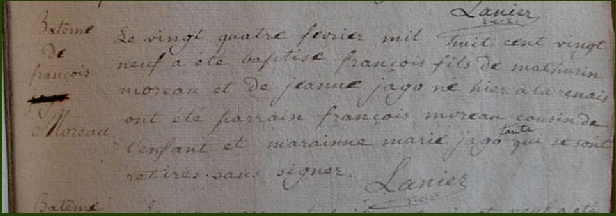 Lanier
Batême
de
françois
Moreau
Le vingt quatre fevrier mil huit cent vingt
neuf a eté baptisé françois fils de mathurin
moreau et de jeanne jago né hier à la renais
ont eté parrain françois moreau cousin de
l'enfant et maraine marie jago tante qui se sont
retirés sans signer.
Lanier
Batême